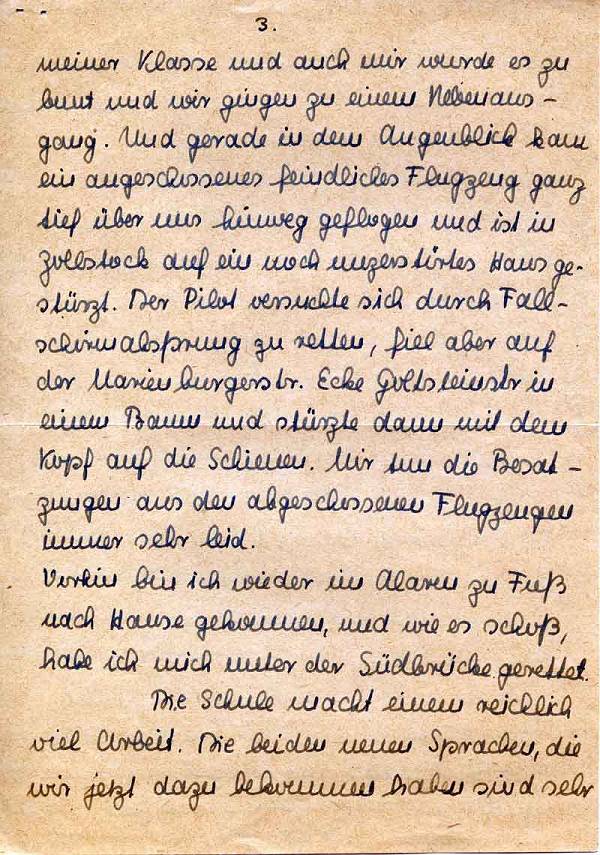 3.
meiner Klasse und auch mir wurde es zu
bunt und wir gingen zu einem Nebenaus-
gang. Und gerade in dem Augenblick kam
ein angeschossenes feindliches Flugzeug ganz
tief über uns hinweg geflogen und ist in
Zollstock auf ein noch unzerstörtes Haus ge-
stürzt. Der Pilot versuchte sich durch Fall-
schirmabsprung zu retten, fiel aber auf
der Marienburgerstr. Ecke Goltsteinstr in
einem Baum und stürzte dann mit dem
Kopf auf die Schienen. Mir tun die Besat-
zungen aus den abgeschossenen Flugzeugen
immer sehr leid.
Vorhin bin ich wieder im Alarm zu Fuß
nach Hause gekommen, und wie es schoß,
habe ich mich unter der Südbrücke gerettet.
Die Schule macht einem reichlich
viel Arbeit. Die beiden neuen Sprachen, die
wir jetzt dazu bekommen haben sind sehr